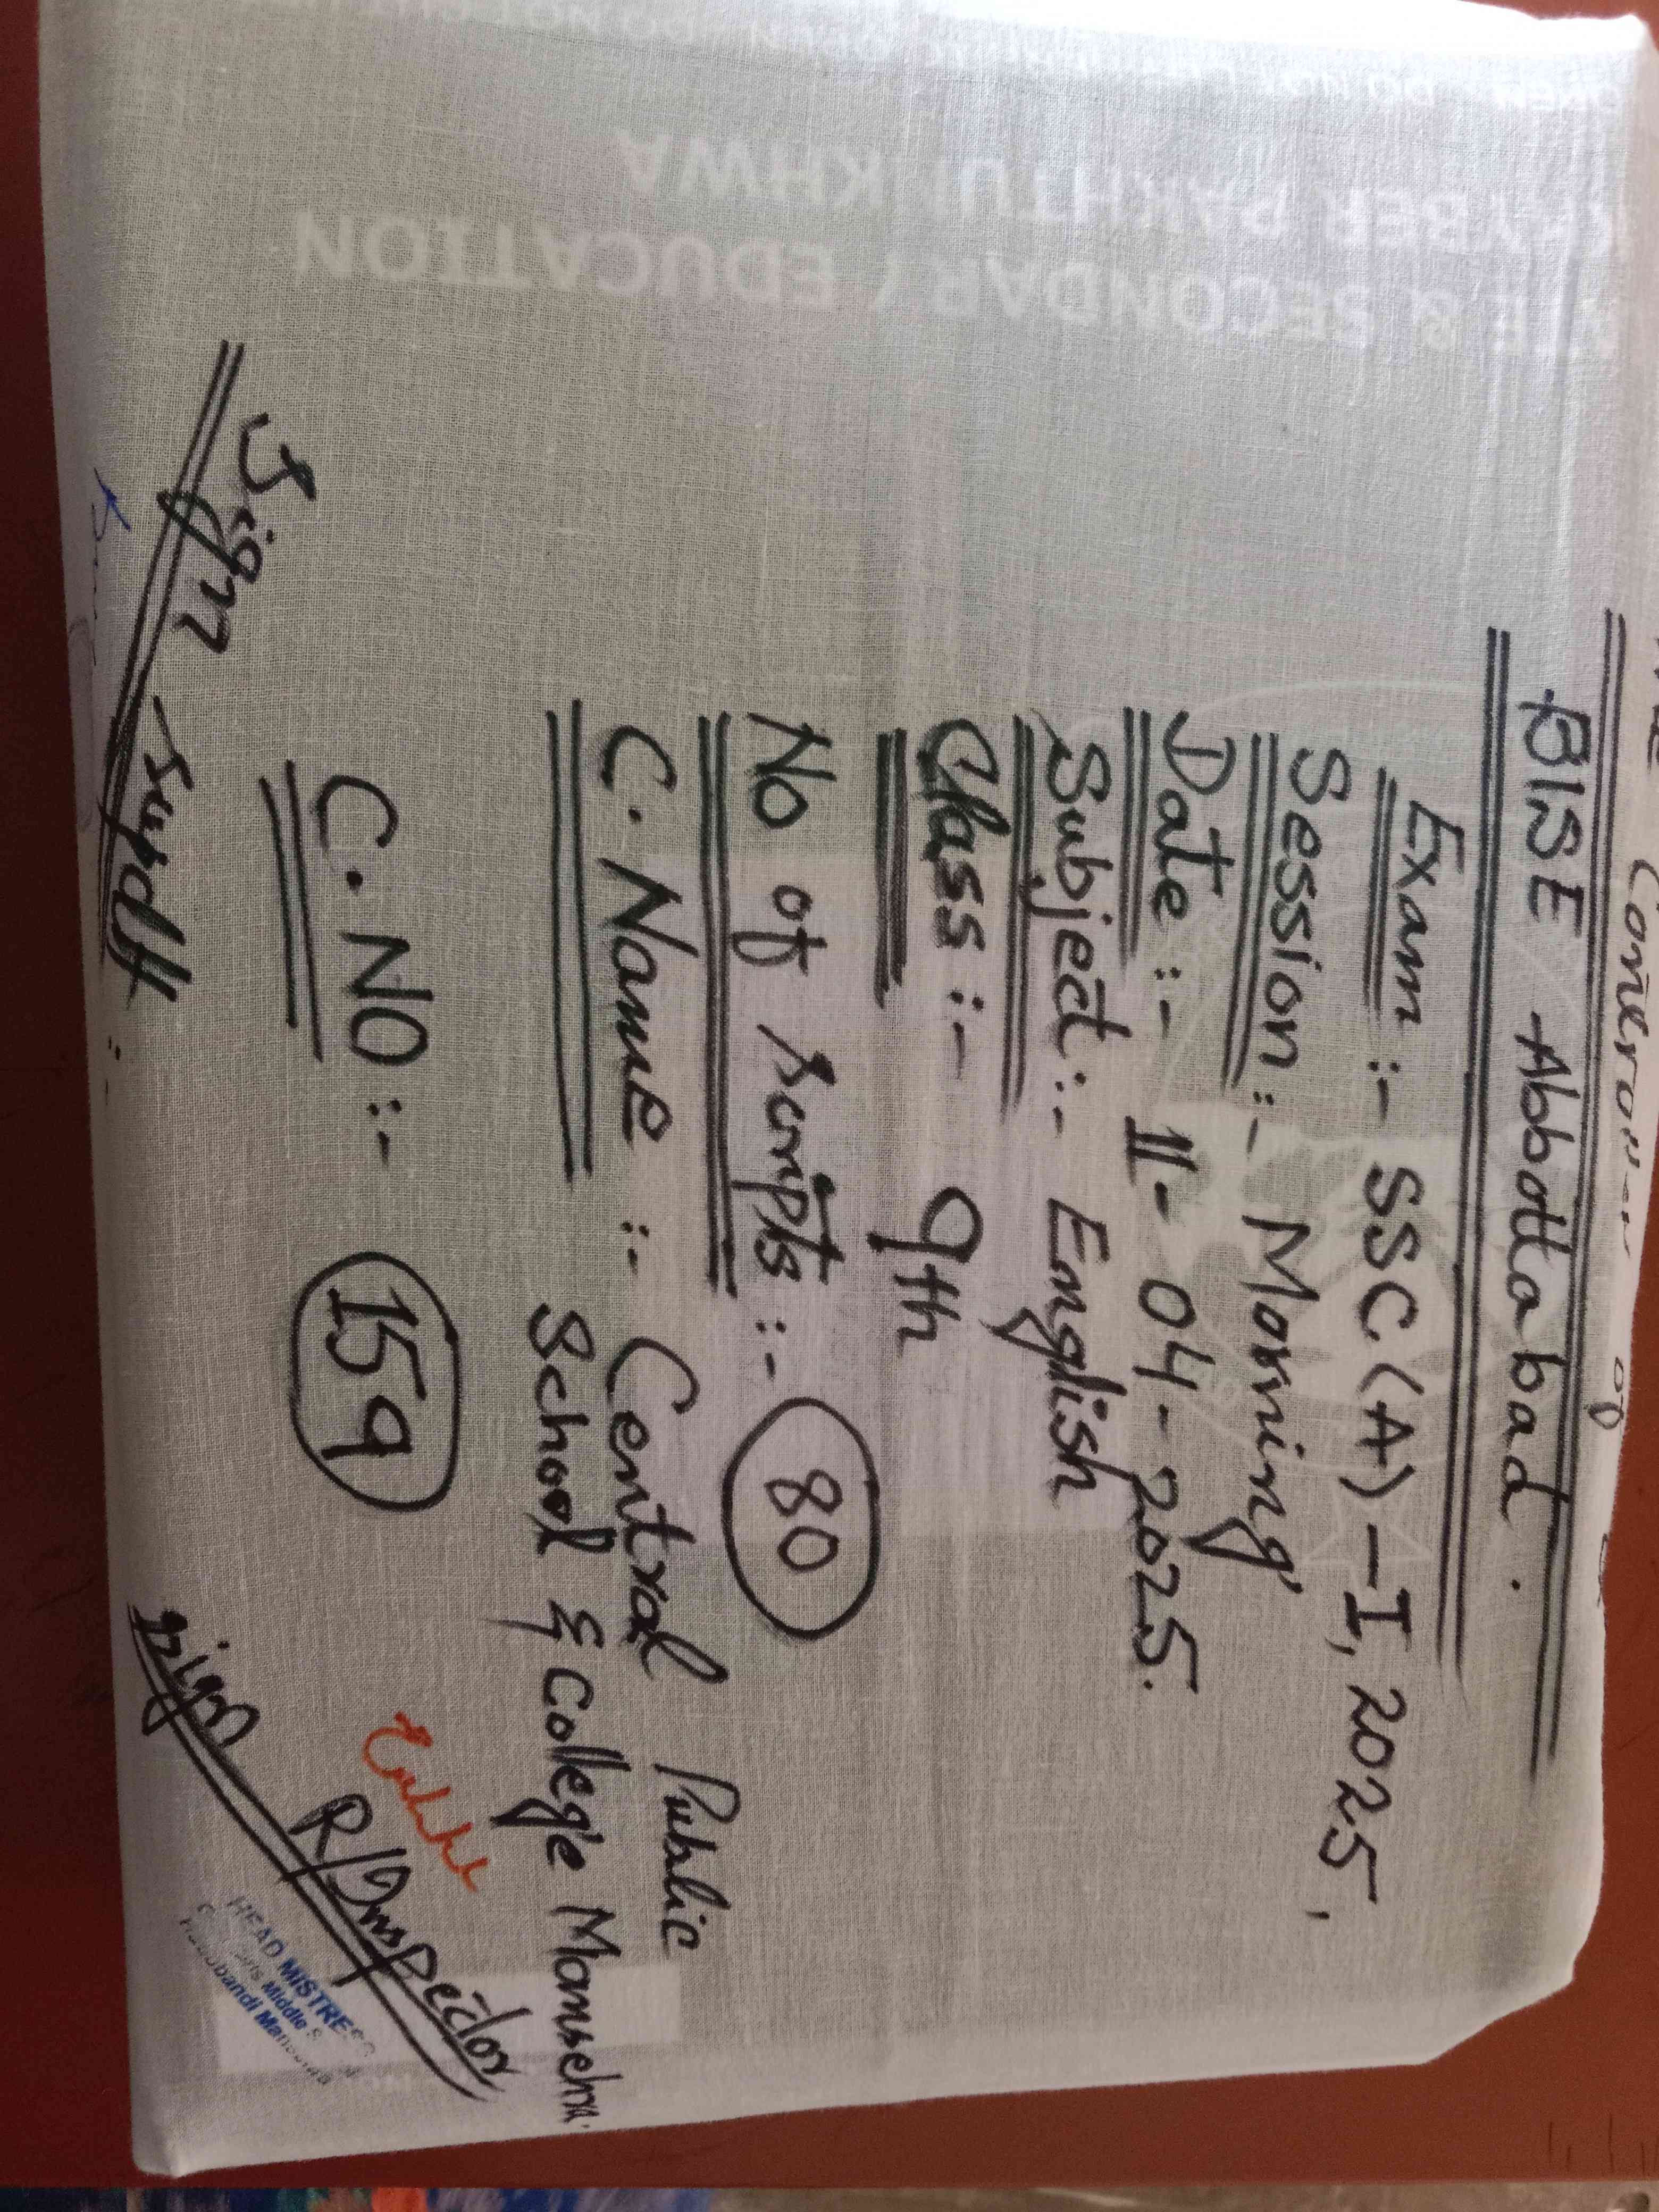 Controller of
BISE Abbottabad.
Exam :- SSC(A)-I, 2025,
Session :- Morning
Date :- 11-04-2025.
Subject :- English
Class :- 9th
No of Scripts :- 80
C. Name :- Central Public
School & College Mansehra.
C. NO :- 159
Sign Supdtt :-
Sign R/Inspector
HEAD MISTRESS
Middle
& SECONDARY EDUCATION
KHYBER PAKHTUNKHWA